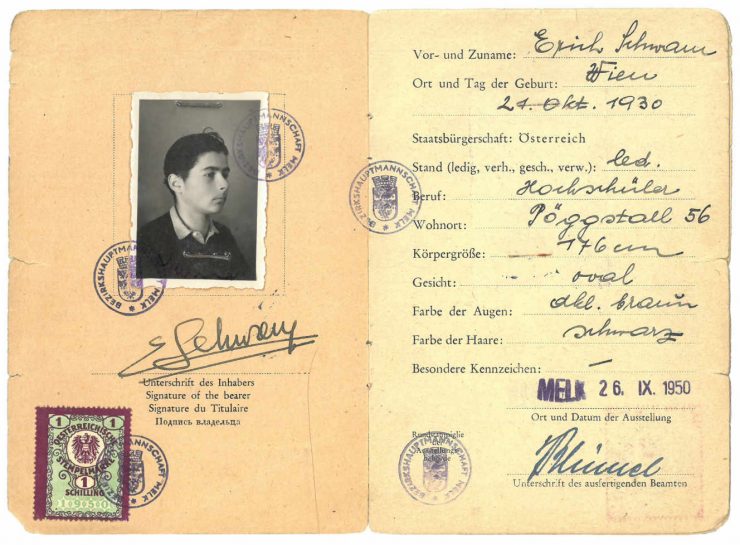 BEZIRKSHAUPTMANNSCHAFT MELK
BEZIRKSHAUPTMANNSCHAFT MELK
E Schwam
Unterschrift des Inhabers
Signature of the bearer
Signature du Titulaire
Подпись владельца
1 1
ÖSTERREICHISCHE
STEMPELMARKE
1
SCHILLING
BEZIRKSHAUPTMANNSCHAFT MELK
Vor- und Zuname: Erich Schwam
Ort und Tag der Geburt: Wien
21. Okt. 1930
Staatsbürgerschaft: Österreich
Stand (ledig, verh., gesch., verw.): led.
Beruf: Hochschüler
Wohnort: Pöggstall 56
Körpergröße: 176 cm
Gesicht: oval
Farbe der Augen: dkl. braun
Farbe der Haare: schwarz
Besondere Kennzeichen: –
BEZIRKSHAUPTMANNSCHAFT MELK
MELK 26. IX. 1950
Ort und Datum der Ausstellung
Rundsiegel
der
Ausstellungs-
behörde
BEZIRKSHAUPTMANNSCHAFT MELK
Unterschrift des ausfertigenden Beamten